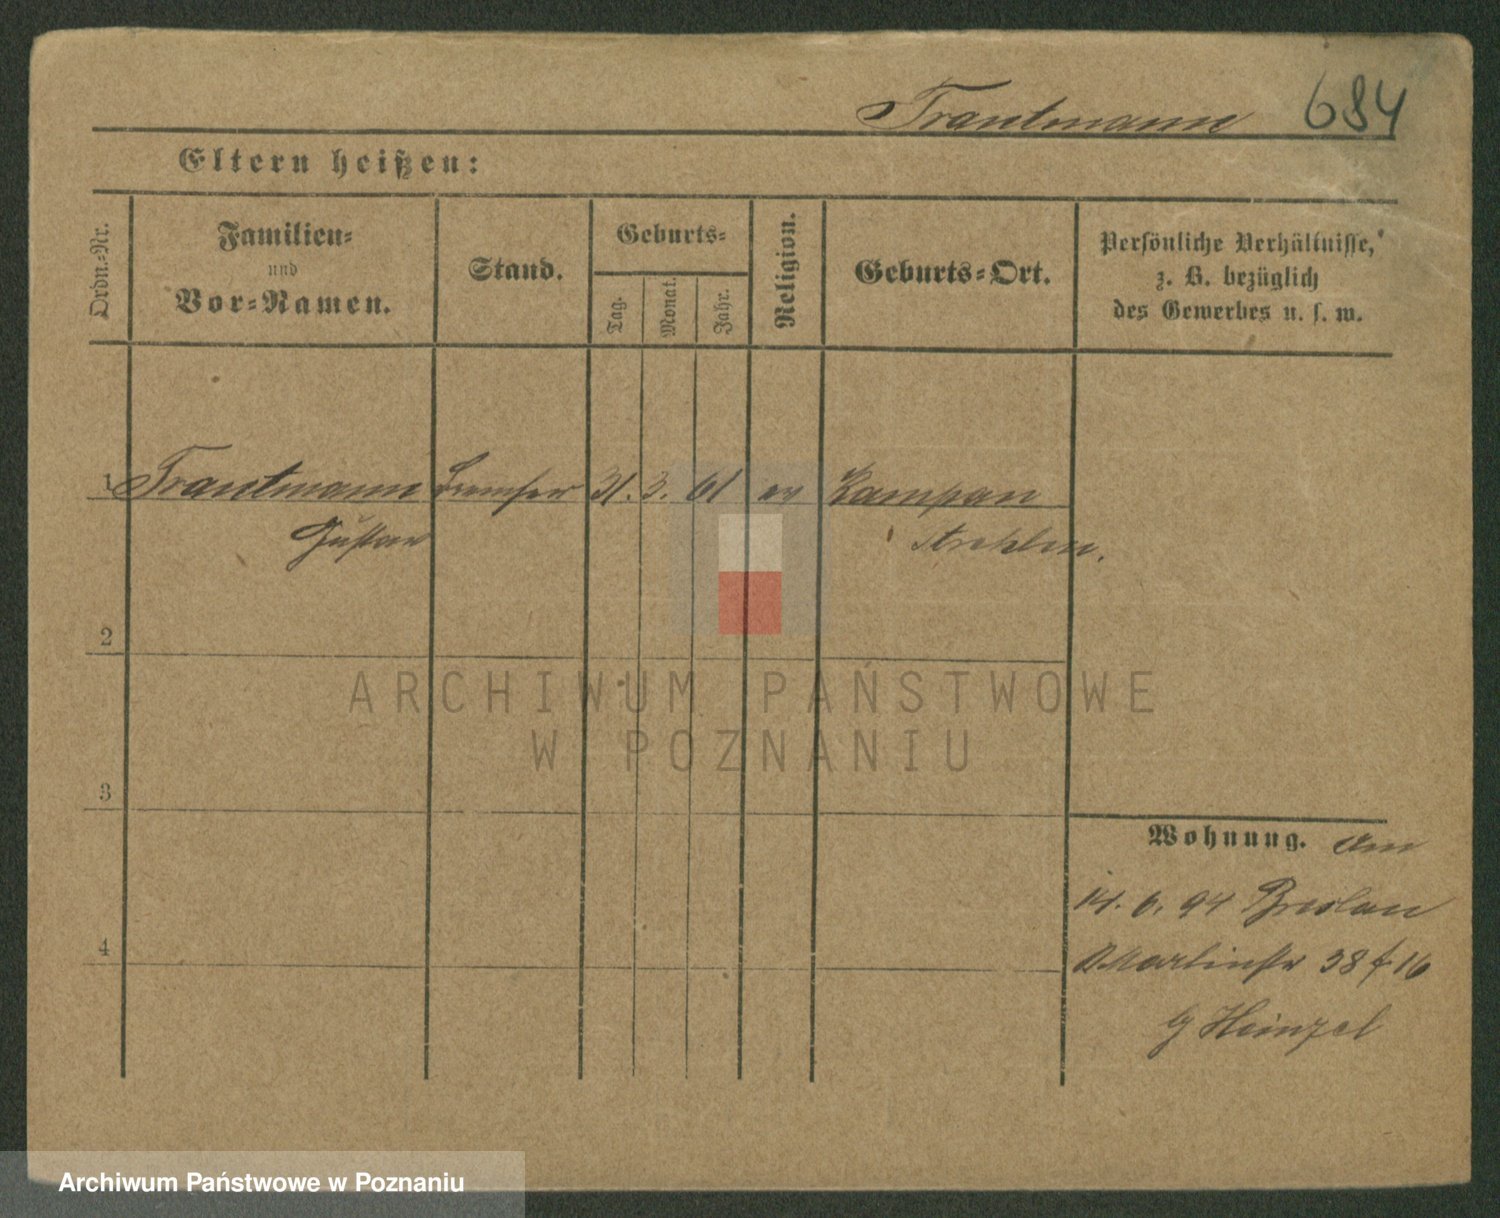 Trautmann 684
Eltern heißen:
Ordn.-Nr.
Familien-
und
Vor-Namen.
Stand.
Geburts-
Tag.
Monat.
Jahr.
Religion.
Geburts-Ort.
Persönliche Verhältnisse,
z. B. bezüglich
des Gewerbes u. s. w.
1 Trautmann 31. 3. 61 ev Kampan
Gustav Strehlen.
2
3
4
Wohnung. Am
14. 6. 94 Breslau
Martinstr 38 16
Heinzel
ARCHIWUM PAŃSTWOWE
W POZNANIU
Archiwum Państwowe w Poznaniu